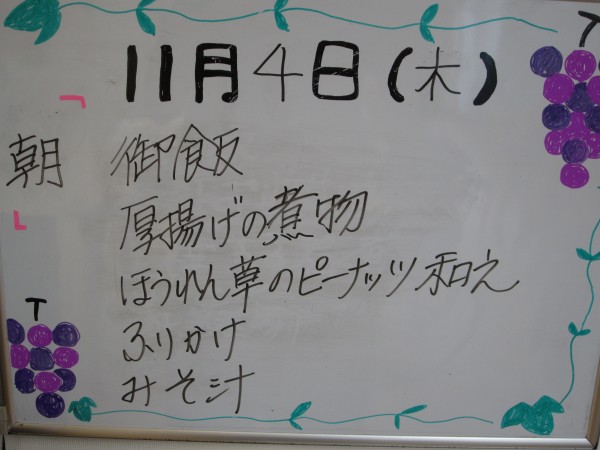 11月4日(木)
朝 御飯
厚揚げの煮物
ほうれん草のピーナッツ和え
ふりかけ
みそ汁